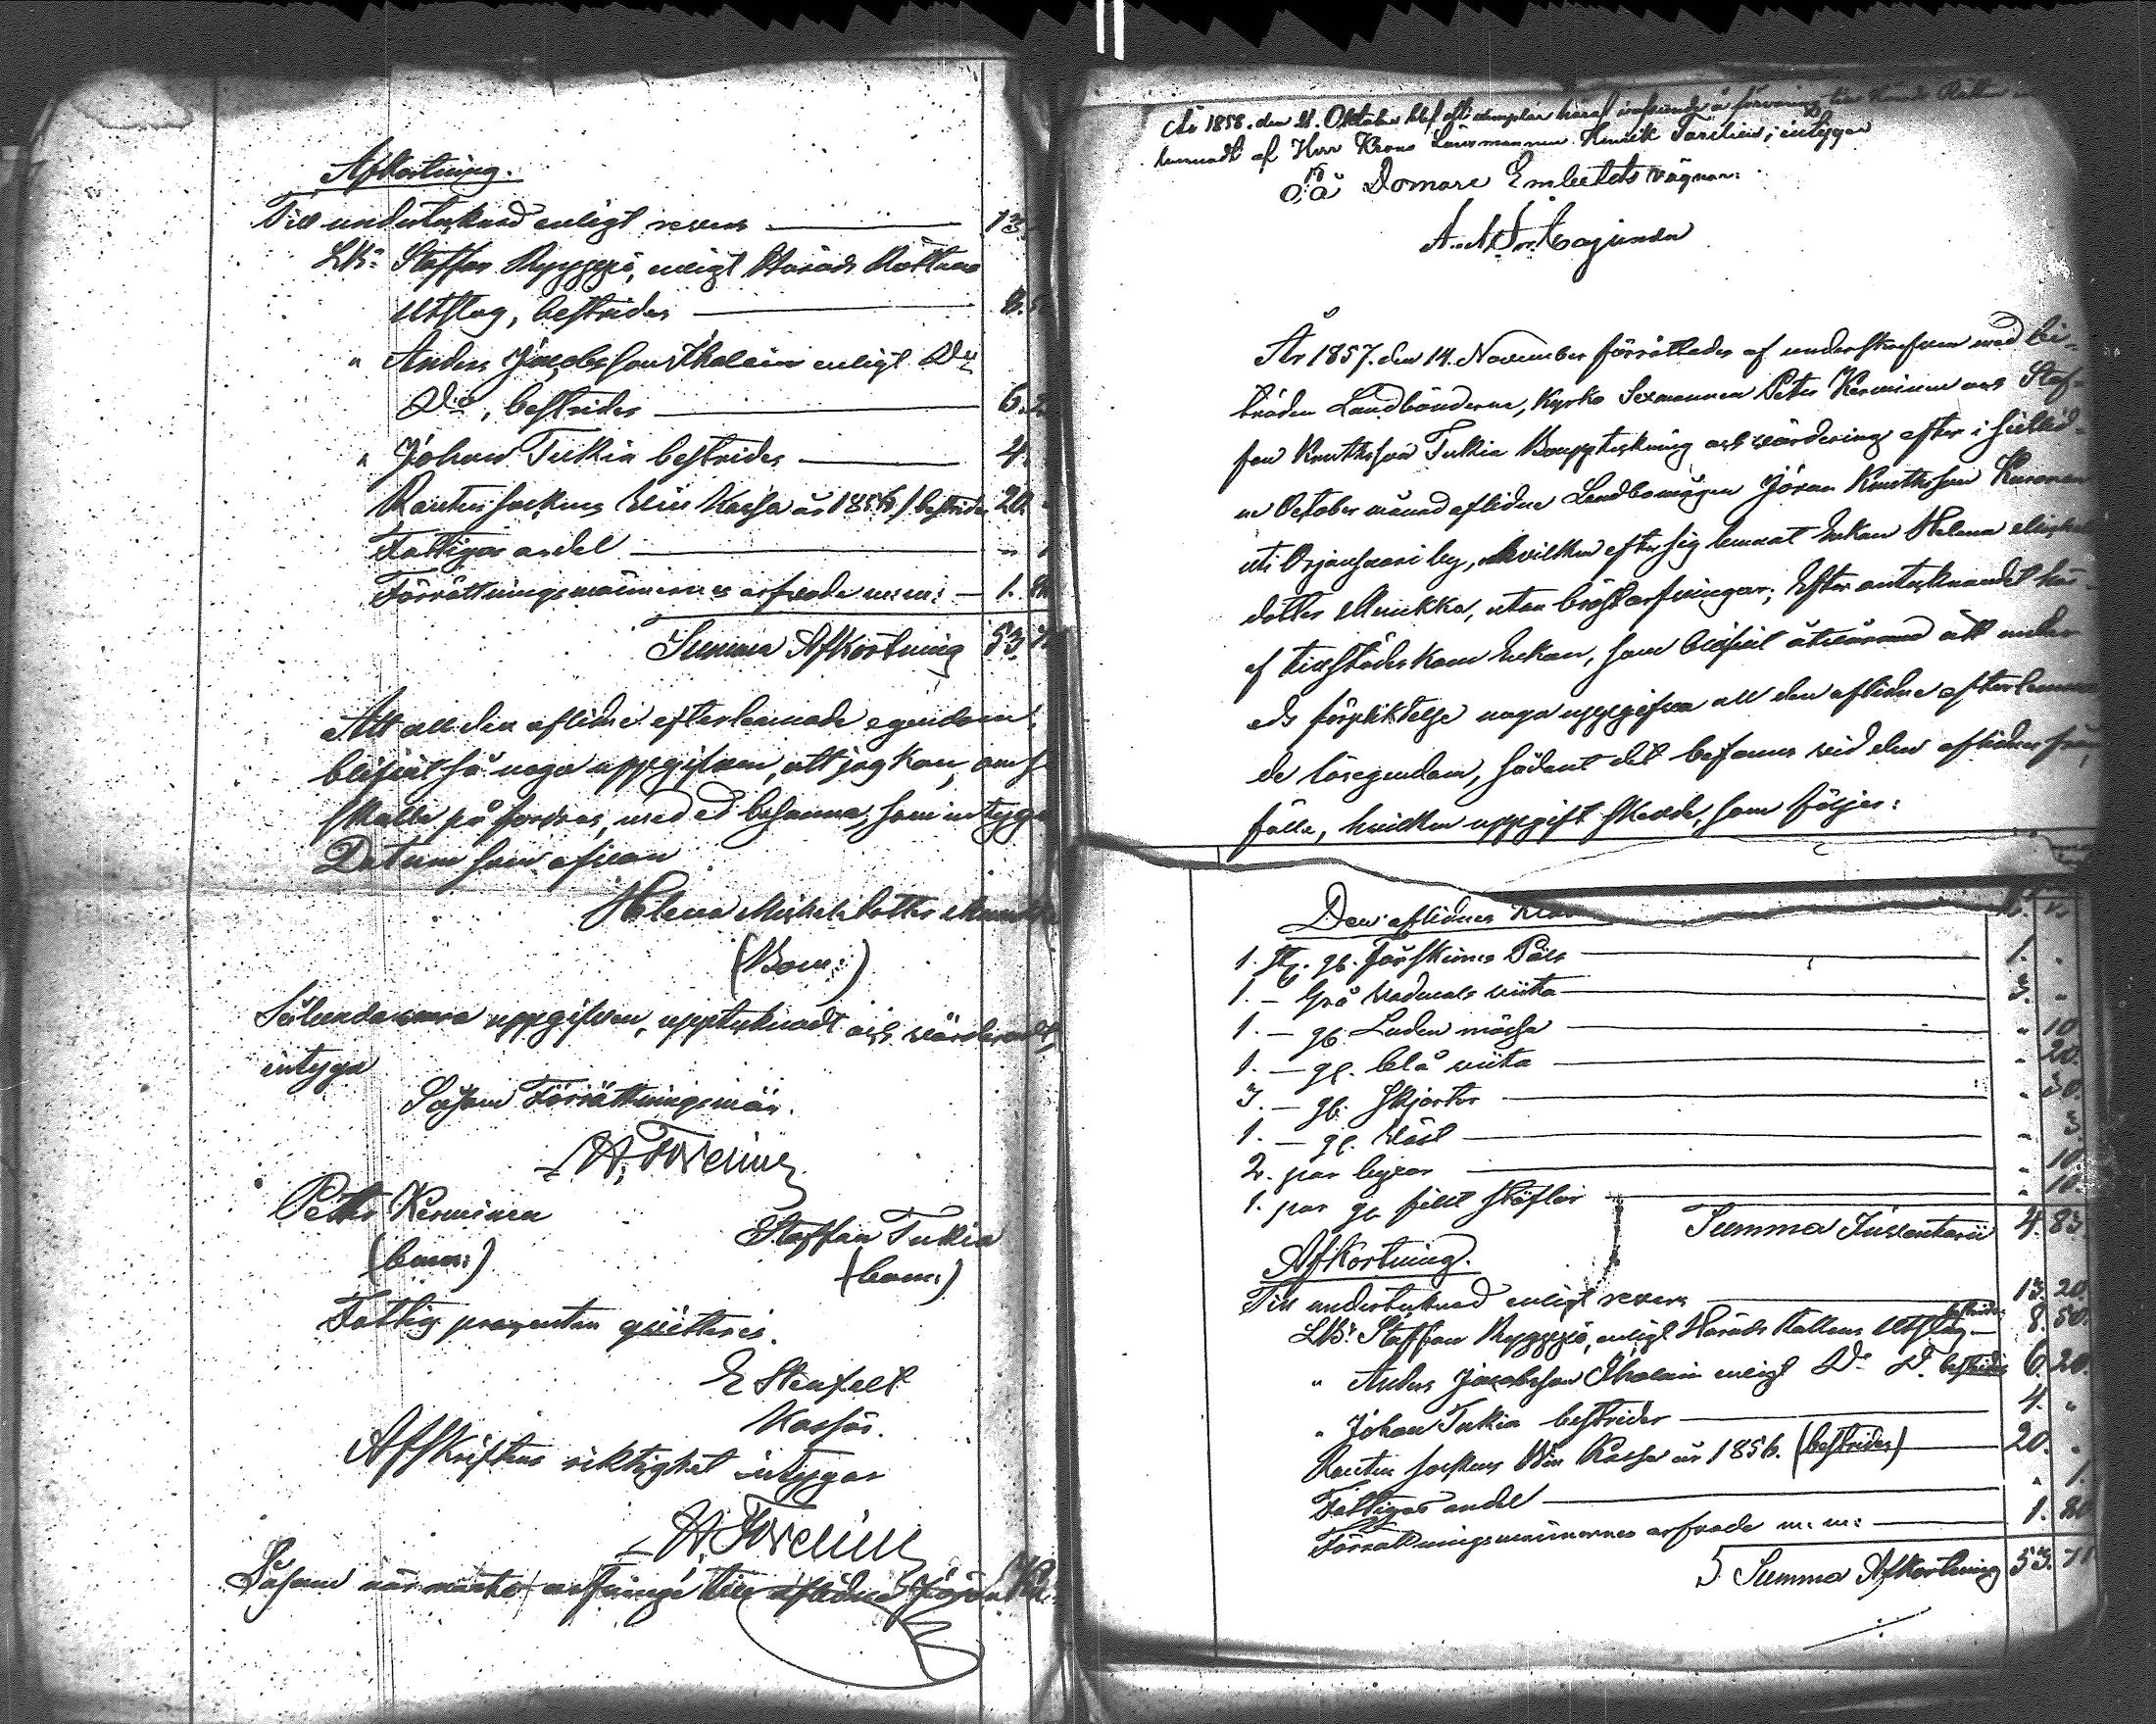 Afkortning.
Till undertecknad enligt revers 13.
LB: Staffan Ryyppö, enligt Härads Rättens
Utslag, bestrides 8.50
" Anders Jacobsson Ihalain enligt D:o
D:o, bestrides 6.2
" Johan Tukia bestrides 4.
Rautus sockens Lån Kassa år 1856 / bestrides 20. "
Fattigas andel " 1
Förrättningsmännernes arfvode m: m: 1. 80
Summa Afkortning 53. 71
Att all den aflidne efterlemnade egendom,
blifvit så noga uppgifven, att jag kan, om så
skulle på fordras, med ed besanna, som intygas
Datum som ofvan
Helena Michelsdotter
(Bom:)
Sålunda vara uppgifven, upptecknadt och värderadt,
intyga
Såsom Förrättningsmän.
H. Forelius
Petter Kerminen
(bom:)
Staffan Tukia
(bom:)
Fattig procenten qvitteras.
E Stenfelt
Kassör.
Afskriftens riktighet intygar
H. Forelius
Såsom närmaste arfvinge till aflidne Jöran
År 1858. den 21. Oktober blef ett exemplar häraf insände å förvaring till Härads Rätten
lemnadt af Herr Krono Länsmannen Henrik Forelius; intygar
På Domare Embetets vägnar:
År 1857. den 14. November förrättades af underskrefven med bi-
träden Landbönderne, Kyrko Sexmannen Peter Kerminen och Staf-
fan Knuthsson Tukia Bouppteckning och värdering efter i sistlid-
ne October månad aflidne Landbomågen Jöran Knuthsson
uti Orjansaari by, hvilken efter sig lemnat Enkan Helena Michels
dotter, utan bröstarfvingar; Efter antecknandet här-
af tillstädes kom Enkan, som blifvit åtvarnad att under
eds förpliktelse noga uppgifva all den aflidne efterlemna
de lösegendom, sådant det befanns vid den aflidnes från-
fälle, hvilken uppgift skedde, som följer:
Den aflidnes
1. st. gl. Fårskinns Päls 1. "
1. - Grå Vadmals viita 3. "
1. - gl. Luden mössa " 10
1. - gl. blå viita " 20.
3. - gl. Skjortor " 30.
1. - gl. Väst " 3
2. par byxor " 10.
1. par gl stöflor " 10.
Summa Inventarii 4. 83.
Afkortning.
Till undertecknad enligt revers 13. 20.
LB: Staffan Ryyppö, enligt Härads Rättens Utslag bestrides 8. 50.
" Anders Jacobsson Ihalain enligt D:o D:o bestrides 6. 20.
" Johan Tukia bestrides 4. "
Rautus sockens Lån Kassa år 1856. (bestrides) 20. "
Fattigas andel " 1.
Förrättningsmännernes arfvode m: m: 1. 80
S Summa Afkortning 53. 71